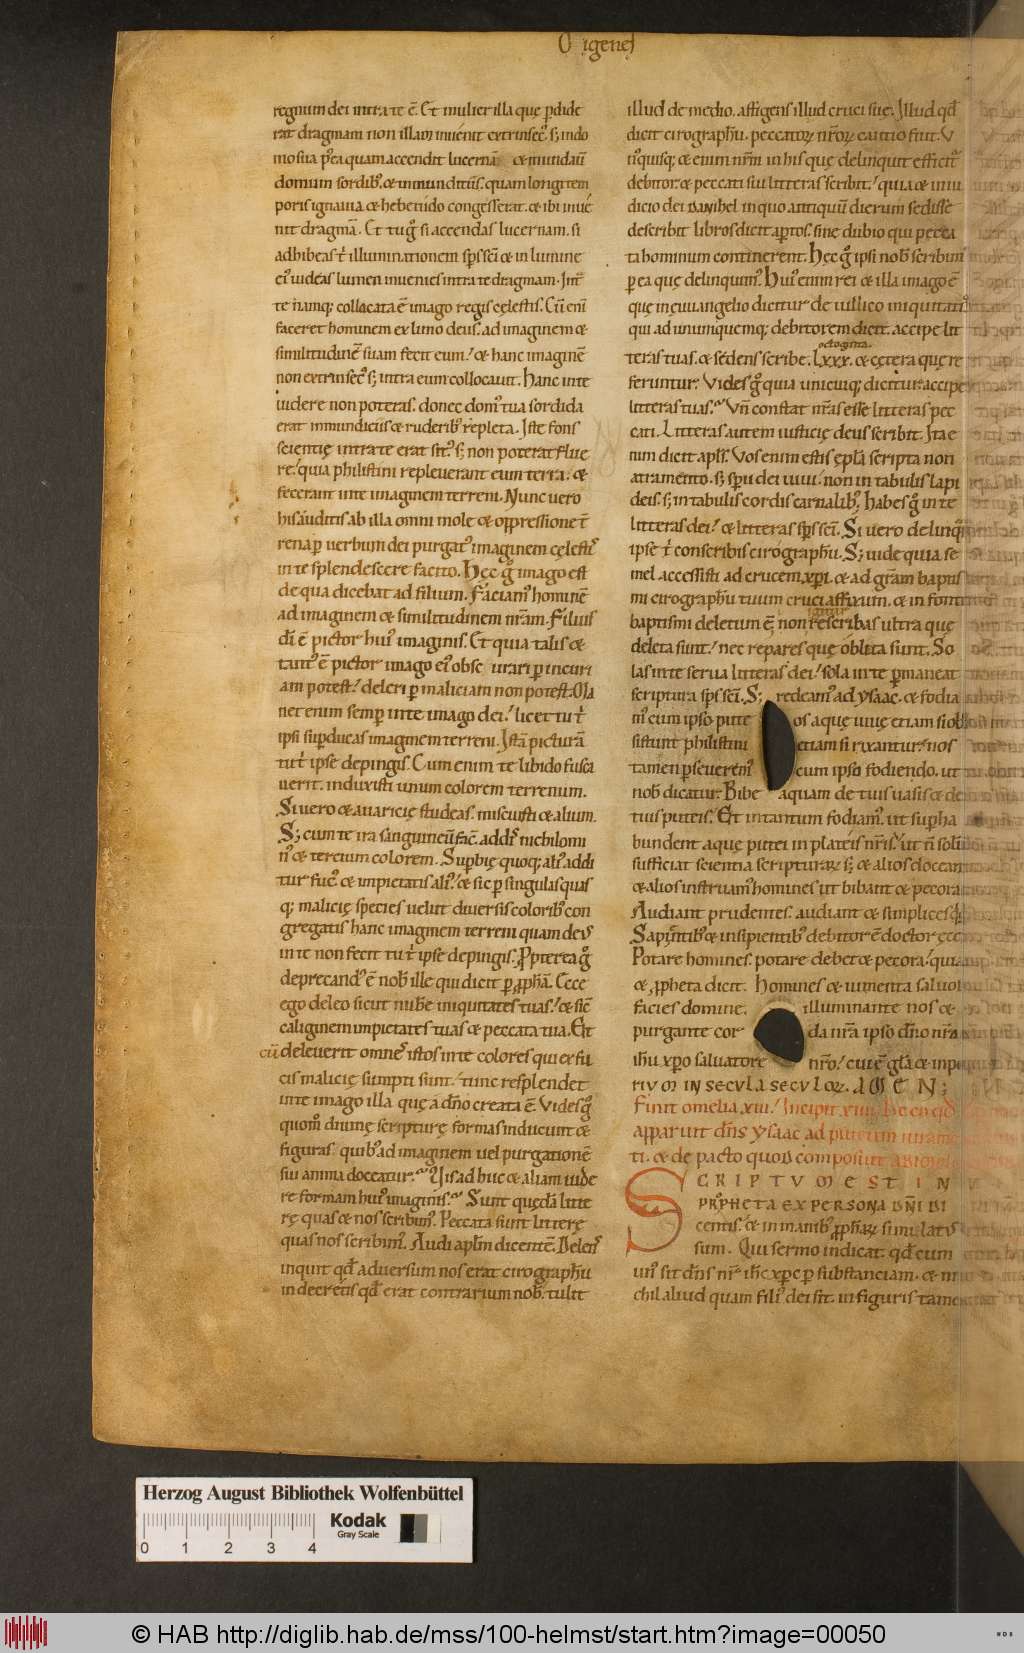 Origenes
regnum dei intra te ē. Et mulier illa quę ꝑdide
rat dragmam non illam inuenit extrinsec᷒. s; in do
mo sua p᷒ea quam accendit lucernā & mundauit
domum sordib᷒. & inmunditiis. quam longi tem
poris ignauia & hebetudo congesserat. & ibi inue
nit dragmā. Et tu g̊ si accendas lucernam. si
adhibeas t' illuminationem sp̄s sc̄i & in lumine
ei᷒ uideas lumen inuenies intra te dragmam. Int᷑
te namq; collocata ē imago regis cęlestis. Cū eni
faceret hominem ex limo deus. ad imaginem &
similitudinē suam fecit eum. & hanc imaginē
non extrinsec᷒ s; intra eum collocauit. Hanc in te
uidere non poteras. donec dom᷒ tua sordida
erat inmundiciis & ruderib᷒ repleta. Iste fons
scientię intra te erat sit᷒ s; non poterat flue
re. quia philistini repleuerant eum terra. &
fecerant in te imaginem terreni. Nunc uero
his auditis ab illa omni mole & oppressione t̄
rena ꝑ uerbum dei purgat᷒ imaginem cęlestē
in te splendescere facito. Hęc g̊ imago est
de qua dicebat ad filium. Faciam᷒ hominē
ad imaginem & similitudinem nr̄am. Filius
dī ē pictor hui᷒ imaginis. Et quia talis &
tant᷒ ē pictor imago ei᷒ obscurari ꝑ incuri
am potest. deleri ꝑ maliciam non potest. Ma
net enim semꝑ in te imago dei. licet tu t'
ipsi suꝑducas imaginem terreni. Istā picturā
tu t' ipse depingis. Cum enim te libido fusca
uerit. induxisti unum colorem terrenum.
Si uero & auaricię studeas. miscuisti & alium.
S; cum te ira sanguineū fac̄. addis nichilomi
n᷒ & tercium colorem. Suꝑbię quoq; ali᷒ addi
tur fuc᷒ & impietatis ali᷒. & sic ꝑ singulas quas
q; malicię species uelut diuersis colorib᷒ con
gregatis hanc imaginem terreni quam deus
in te non fecit tu t' ipse depingis. Propterea g̊
deprecand᷒ ē nob̄ ille qui dicit ꝑ ꝓphām. Ecce
ego deleo sicut nubē iniquitates tuas. & sic̄
caliginem impietates tuas & peccata tua. Et
cū deleuerit omnes istos in te colores qui ex fu
cis malicię sumpti sunt. tunc resplendet
in te imago illa quę a dn̄o creata ē. Vides g̊
quom̊ diuinę scripturę formas inducunt &
figuras. quib᷒ ad imaginem uel purgationē
sui anima doceatur. Vis adhuc & aliam uide
re formam hui᷒ imaginis. Sunt quędā litte
rę quas & nos scribim᷒. Peccata sunt litterę
quas nos scribim᷒. Audi apl̄m dicentē. Delens
inquit qd̄ aduersum nos erat cirographū
in decretis qd̄ erat contrarium nob̄. tulit
illud de medio. affigens illud cruci suę. Illud qd̄
dicit cirographū. peccatorꝝ nr̄orꝝ cautio fuit. V
n᷒quisq; & enim nr̄m in his quę delinquit efficit᷑
debitor. & peccati sui litteras scribit. quia & in iu
dicio dei danihel in quo antiquū dierum sedisse
describit libros dicit aꝑtos. sine dubio qui pecca
ta hominum continerent. Hęc g̊ ipsi nob̄ scribim᷒
ꝑ ea quę delinquim᷒. Hui᷒ enim rei & illa imago ē
quę in euuangelio dicitur de uillico iniquitatis
qui ad unumquemq; debitorem dicit. accipe lit
octoginta
teras tuas. & sedens scribe. lxxx. & cętera quę re
feruntur. Vides g̊ quia unicuiq; dicitur accipe
litteras tuas. Vn̄ constat nr̄as esse litteras pec
cati. Litteras autem iusticię deus scribit. Ita e
nim dicit apl̄s. Vos enim estis epl̄a scripta non
atramento. s; sp̄u dei uiui. non in tabulis lapi
deis. s; in tabulis cordis carnalib᷒. habes g̊ in te
litteras dei. & litteras sp̄s sc̄i. Si uero delinquis
ipse t' conscribis cirographū. S; uide quia se
mel accessisti ad crucem xp̄i. & ad gr̄am baptis
mi cirographū tuum cruci affixum. & in fonte
igitur
baptismi deletum ē. non rescribas ultra quę
deleta sunt. nec repares quę oblita sunt. So
las in te serua litteras dei. sola in te ꝑmaneat
scriptura sp̄s sc̄i. S; redeam᷒ ad ysaac. & fodia
m᷒ cum ipso puteos aquę uiuę etiam si ob
sistunt philistini etiam si rixantur. nos
tamen ꝑseuerem᷒ cum ipso fodiendo. ut
nob̄ dicatur. Bibe aquam de tuis uasis & de
tuis puteis. Et in tantum fodiam᷒. ut suꝑha
bundent aquę putei in plateis nr̄is. ut n̄ solū
sufficiat scientia scripturarꝝ s; & alios doceam
& alios instruam᷒ homines ut bibant & pecora
Audiant prudentes. audiant & simplices
Sapientib᷒ & insipientib᷒ debitor ē doctor ęcc
Potare homines. potare debet & pecora. quia
& ꝓpheta dicit. Homines & iumenta saluos
facies domine. illuminante nos &
purgante corda nr̄a ipso dn̄o nr̄o
ihū xp̄o saluatore nr̄o. cui ē gl̄a & inpe
rium IN SECVLA SECVLOꝜ. AMEN;
Finit omelia .xiii. Incipit .xiiii. De eo qd̄
apparuit dn̄s ysaac ad puteum iurame
ti. & de pacto quod composuit abimelech
SCRIPTVM EST IN
PROPHETA EX PERSONA DN̄I DI
centis. & in manib᷒ ꝓphetarꝝ similatus
sum. Qui sermo indicat. qd̄ cum
un᷒ sit dn̄s nr̄ ihc̄ xp̄c ꝑ substanciam. & ni
chil aliud quam fili᷒ dei sit. in figuris tamen
Herzog August Bibliothek Wolfenbüttel
Kodak
Gray Scale
0 1 2 3 4
© HAB http://diglib.hab.de/mss/100-helmst/start.htm?image=00050
HAB